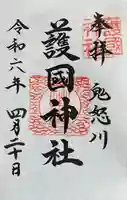 奉拝
鬼怒川
護國神社
令和六年 四月二十日